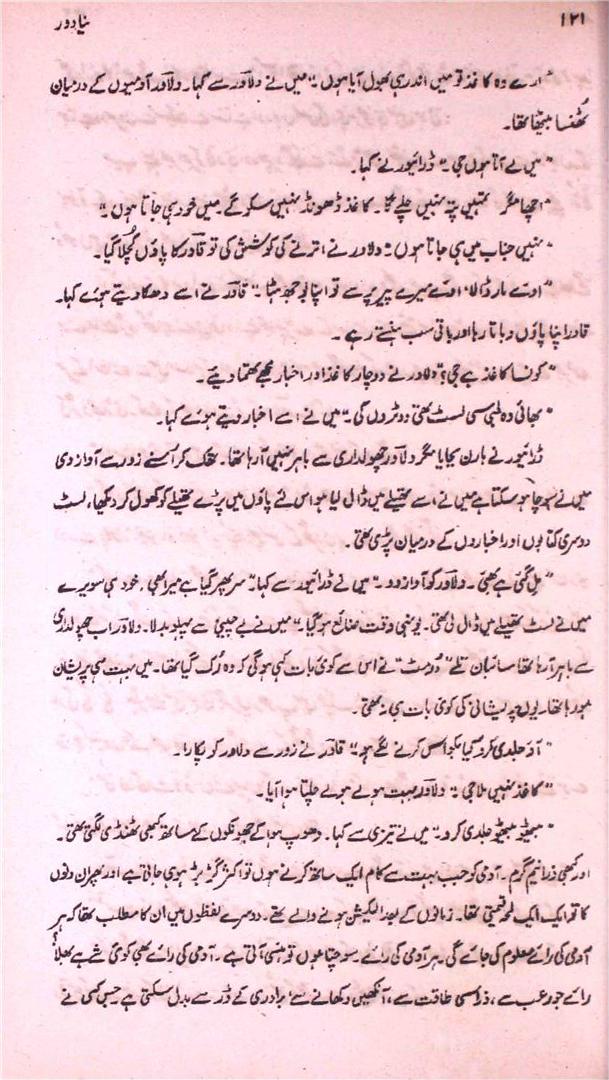 ۱۲۱
نیا دور
"ارے وہ کاغذ تو میں اندر ہی بھول آیا ہوں۔" میں نے دلاور سے کہا۔ دلاور آدمیوں کے درمیان
ٹھنسا بیٹھا تھا۔
"میں لے آتا ہوں جی۔" ڈرائیور نے کہا۔
"اچھا مگر تمہیں پتہ نہیں چلے گا۔ کاغذ ڈھونڈ نہیں سکو گے۔ میں خود ہی جاتا ہوں۔"
"نہیں جناب میں ہی جاتا ہوں" دلاور نے اترنے کی کوشش کی تو قادر کا پاؤں کچلا گیا۔
"اوئے مار ڈالا، اوئے میرے پیر پر سے تو اپنا بوجھ ہٹا۔" قادر نے اسے دھکا دیتے ہوئے کہا۔
قادر اپنا پاؤں دباتا رہا اور باقی سب ہنستے رہے۔
"کونسا کاغذ ہے جی؟" دلاور نے دو چار کاغذ اور اخبار مجھے تھما دیئے۔
"بھائی وہ لمبی سی لسٹ تھی ووٹروں کی۔" میں نے اسے اخبار دیتے ہوئے کہا۔
ڈرائیور نے ہارن بجایا مگر دلاور چھولداری سے باہر نہیں آ رہا تھا۔ تھک کر اُسنے زور سے آواز دی
میں نے سوچا ہو سکتا ہے میں نے اسے تھیلے میں ڈال لیا ہو اس لئے پاؤں میں پڑے تھیلے کو کھول کر دیکھا، لسٹ
دوسری کتابوں اور اخباروں کے درمیان پڑی تھی۔
"مل گئی ہے بھئی۔ دلاور کو آواز دو۔" میں نے ڈرائیور سے کہا۔ "سر پھر گیا ہے میرا بھی، خود ہی سویرے
میں نے لسٹ تھیلے میں ڈال لی تھی۔ یونہی وقت ضائع ہو گیا۔" میں نے بے چینی سے پہلو بدلا۔ دلاور اب چھولداری
سے باہر آ رہا تھا سائبان تلے "دوست" نے اس سے کوئی بات کہی ہوگی کہ وہ رُک گیا تھا۔ میں بہت ہی پریشان
ہو رہا تھا۔ یوں پریشانی کی کوئی بات ہی نہ تھی۔
"آؤ جلدی کرو کیا بکواس کرنے لگے ہو" قادر نے زور سے دلاور کو پکارا۔
"کاغذ نہیں ملا جی۔" دلاور بہت ہولے ہولے چلتا ہوا آیا۔
"بیٹھو بیٹھو جلدی کرو۔" میں نے تیزی سے کہا۔ دھوپ ہوا کے جھونکوں کے ساتھ کبھی ٹھنڈی لگتی تھی۔
اور کبھی ذرا نیم گرم۔ آدمی کو جب بہت سے کام ایک ساتھ کرنے ہوں تو اکثر گڑبڑ ہو ہی جاتی ہے اور پھر ان دنوں
کا تو ایک ایک لمحہ قیمتی تھا۔ زمانوں کے بعد الیکشن ہونے والے تھے۔ دوسرے لفظوں میں ان کا مطلب تھا کہ ہر
آدمی کی رائے معلوم کی جائے گی۔ ہر آدمی کی رائے سوچتا ہوں تو ہنسی آتی ہے۔ آدمی کی رائے بھی کوئی شے ہے بھلا
رائے جو رعب سے، ذرا سی طاقت سے، آنکھیں دکھانے سے، برادری کے ڈر سے بدل سکتی ہے۔ جس کسی نے